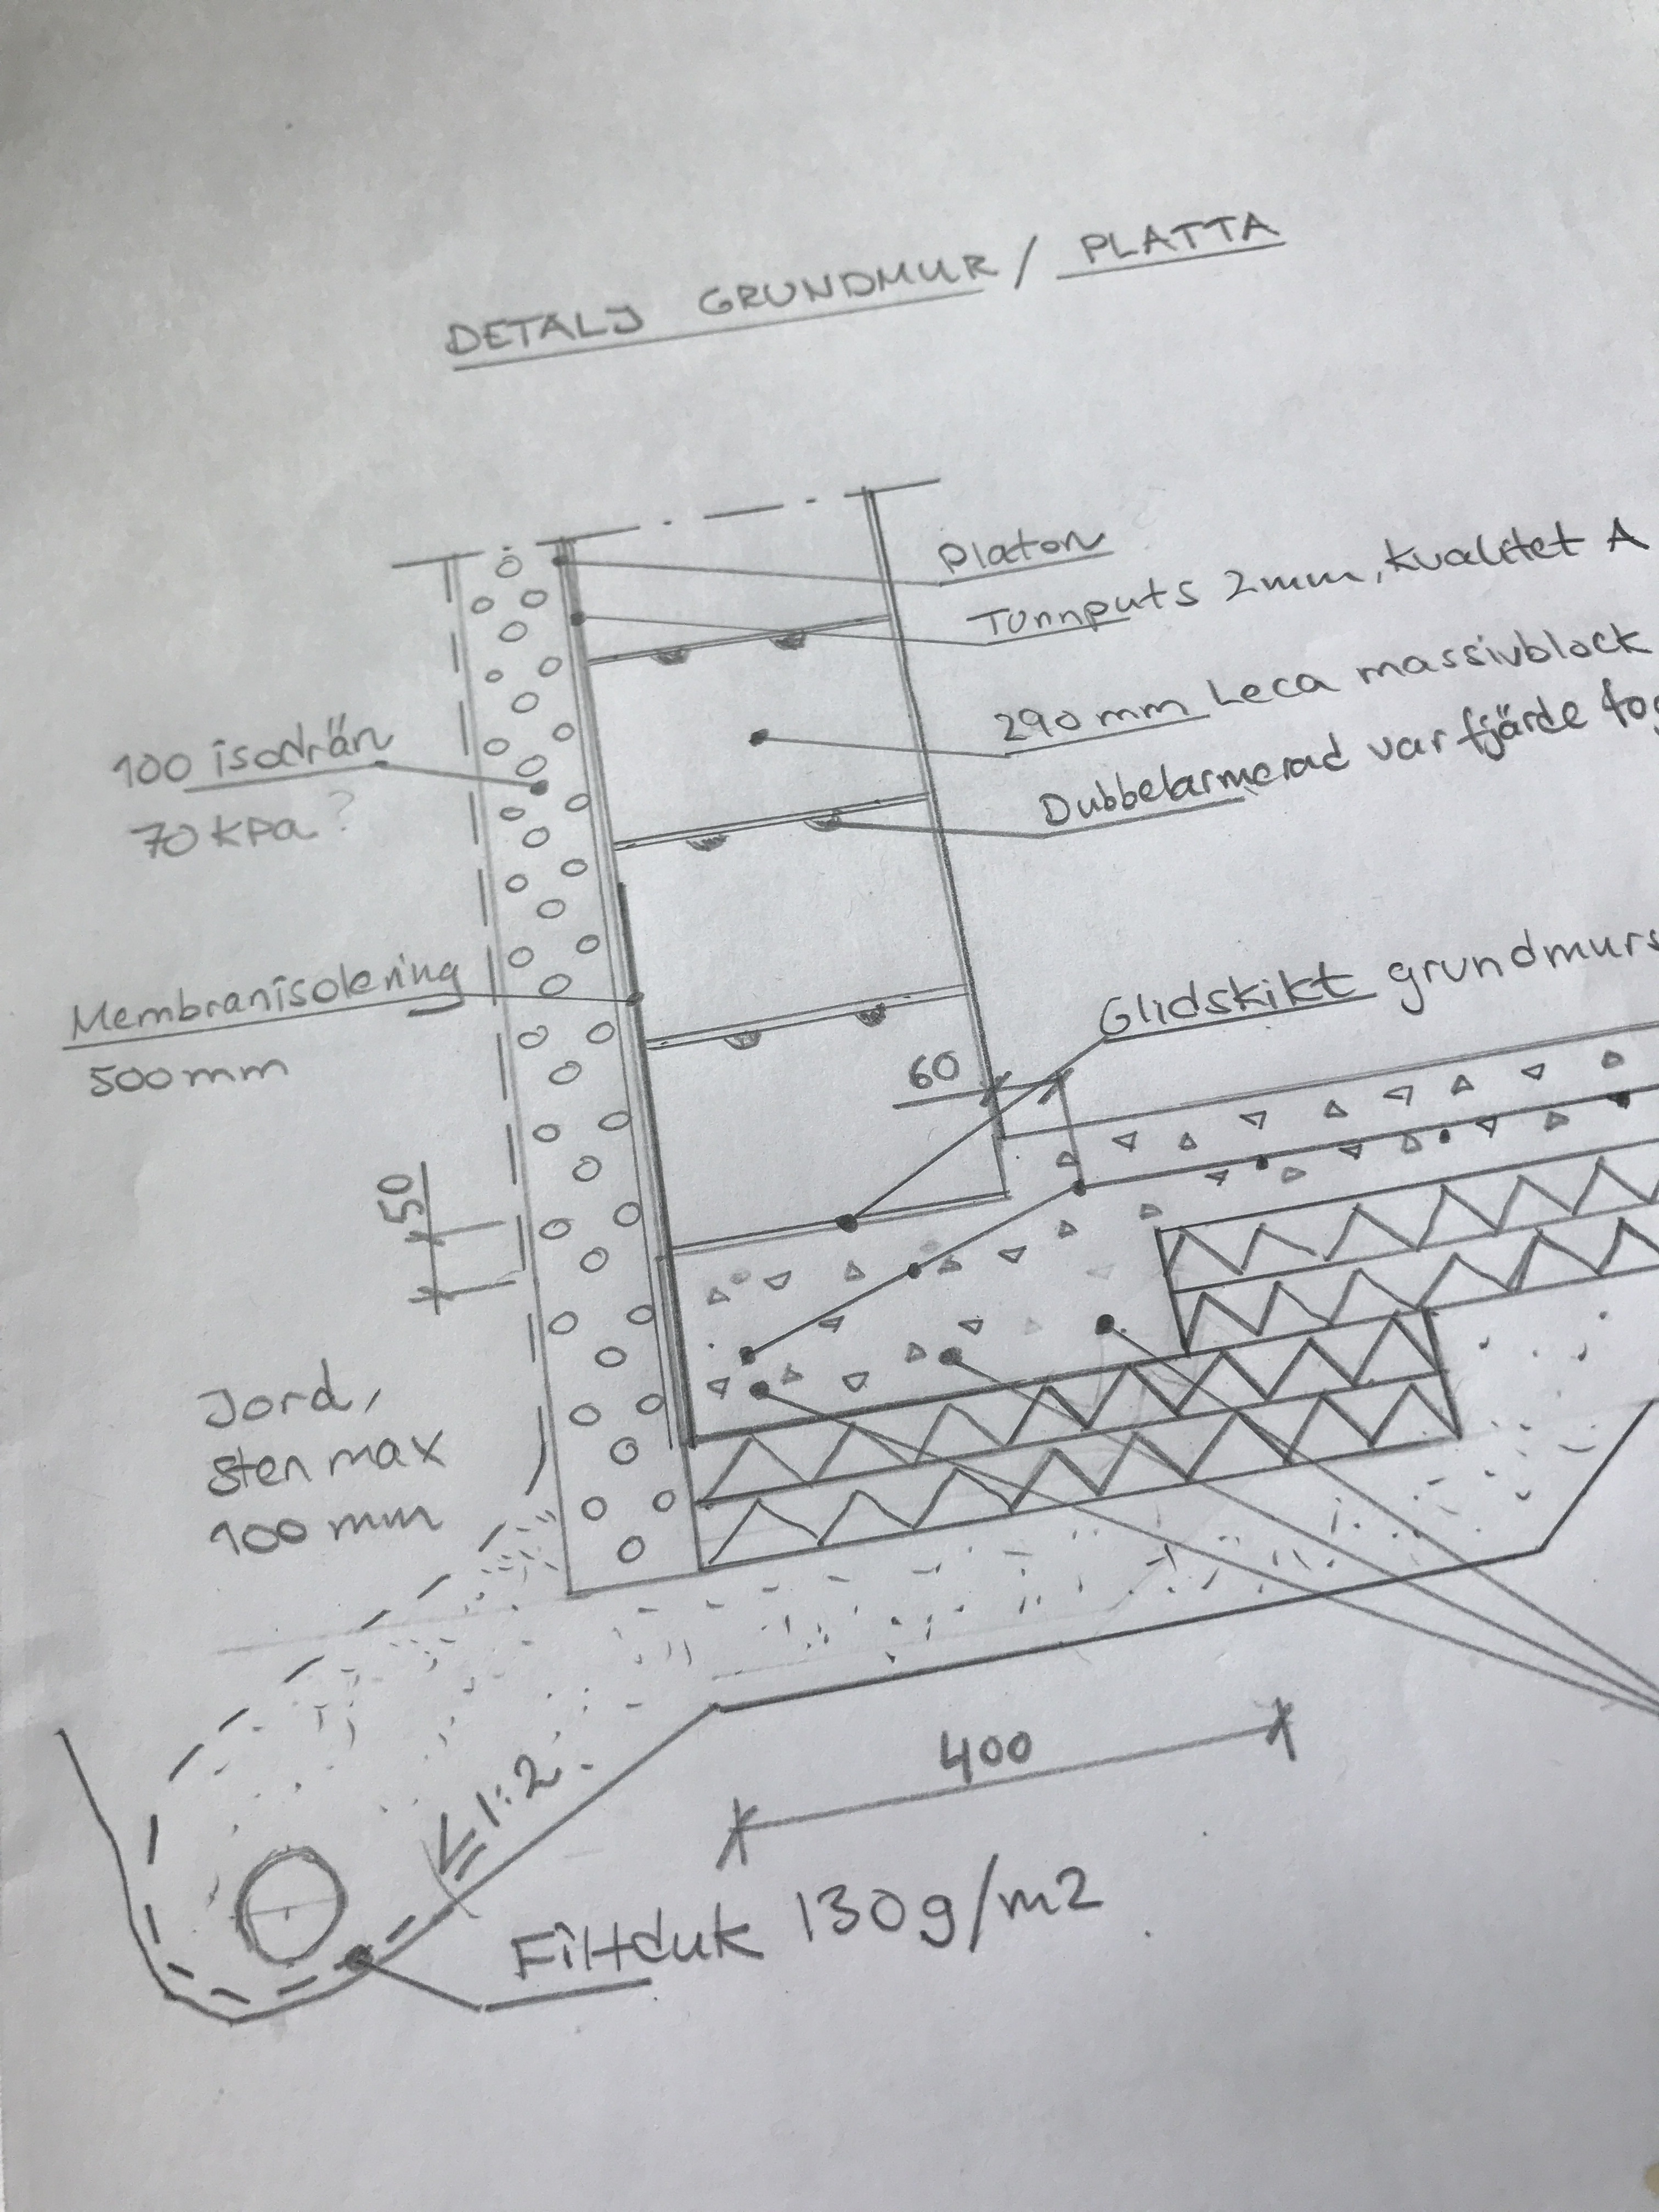 DETALJ GRUNDMUR / PLATTA
Platon
Tunnputs 2mm, kvalitet A
290mm Leca massivblock
Dubbelarmerad var fjärde fog
100 isodrän
70 kPa?
Membranisolering
500mm
Glidskikt grundmurs
60
50
Jord,
sten max
100 mm
1:2
400
Filtduk 130g/m2